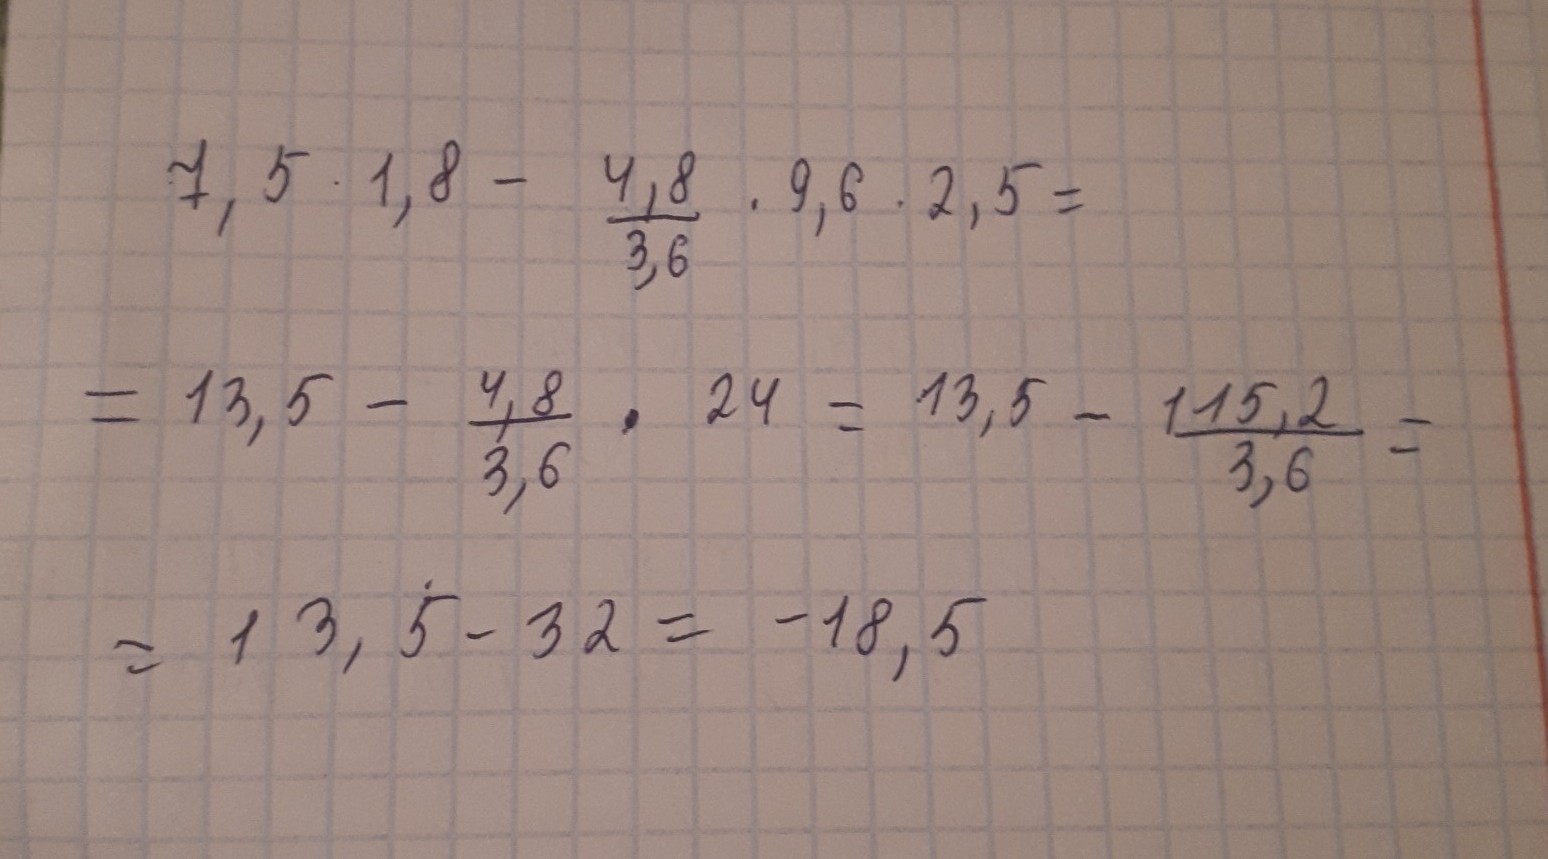 7,5 · 1,8 - 4,8/3,6 · 9,6 · 2,5 =
= 13,5 - 4,8/3,6 · 24 = 13,5 - 115,2/3,6 =
= 13,5 - 32 = -18,5